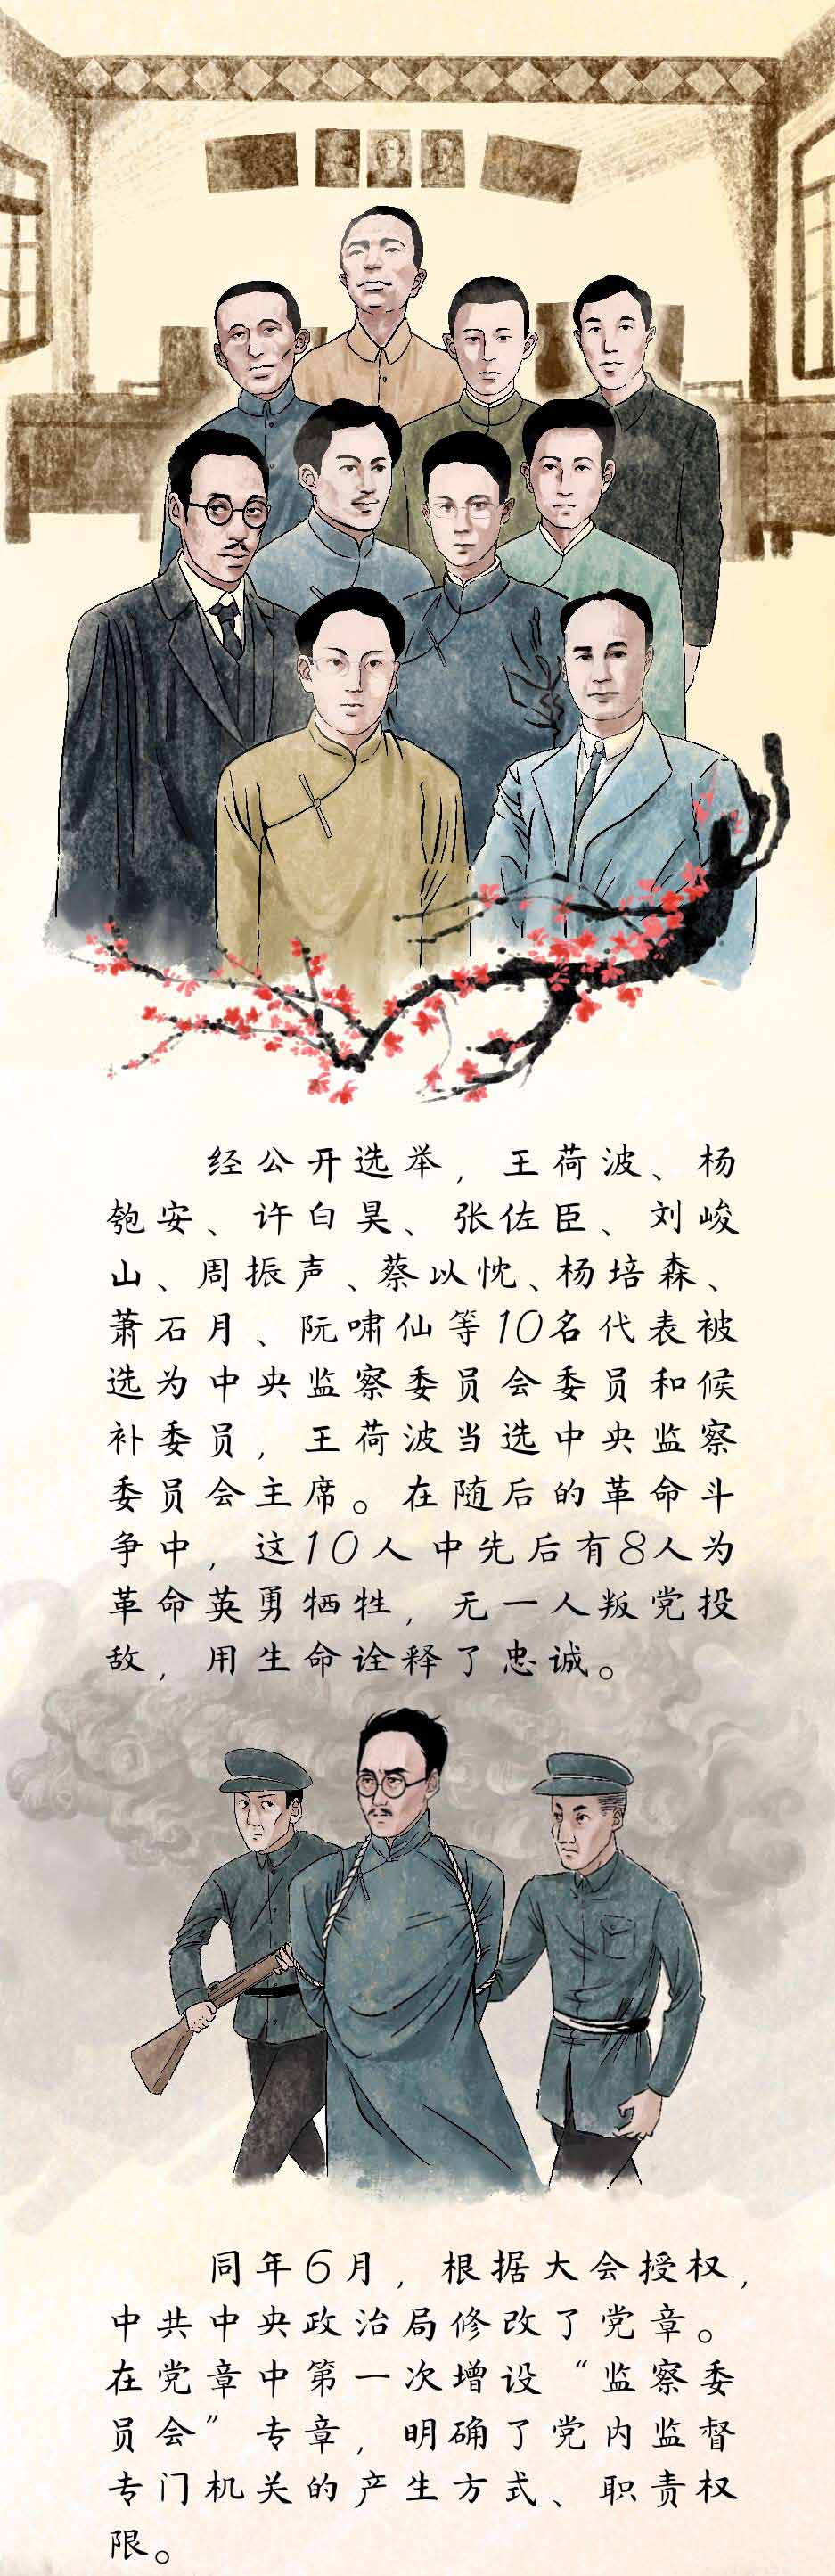 经公开选举，王荷波、杨
匏安、许白昊、张佐臣、刘峻
山、周振声、蔡以忱、杨培森、
萧石月、阮啸仙等10名代表被
选为中央监察委员会委员和候
补委员，王荷波当选中央监察
委员会主席。在随后的革命斗
争中，这10人中先后有8人为
革命英勇牺牲，无一人叛党投
敌，用生命诠释了忠诚。
同年6月，根据大会授权，
中共中央政治局修改了党章。
在党章中第一次增设“监察委
员会”专章，明确了党内监督
专门机关的产生方式、职责权
限。